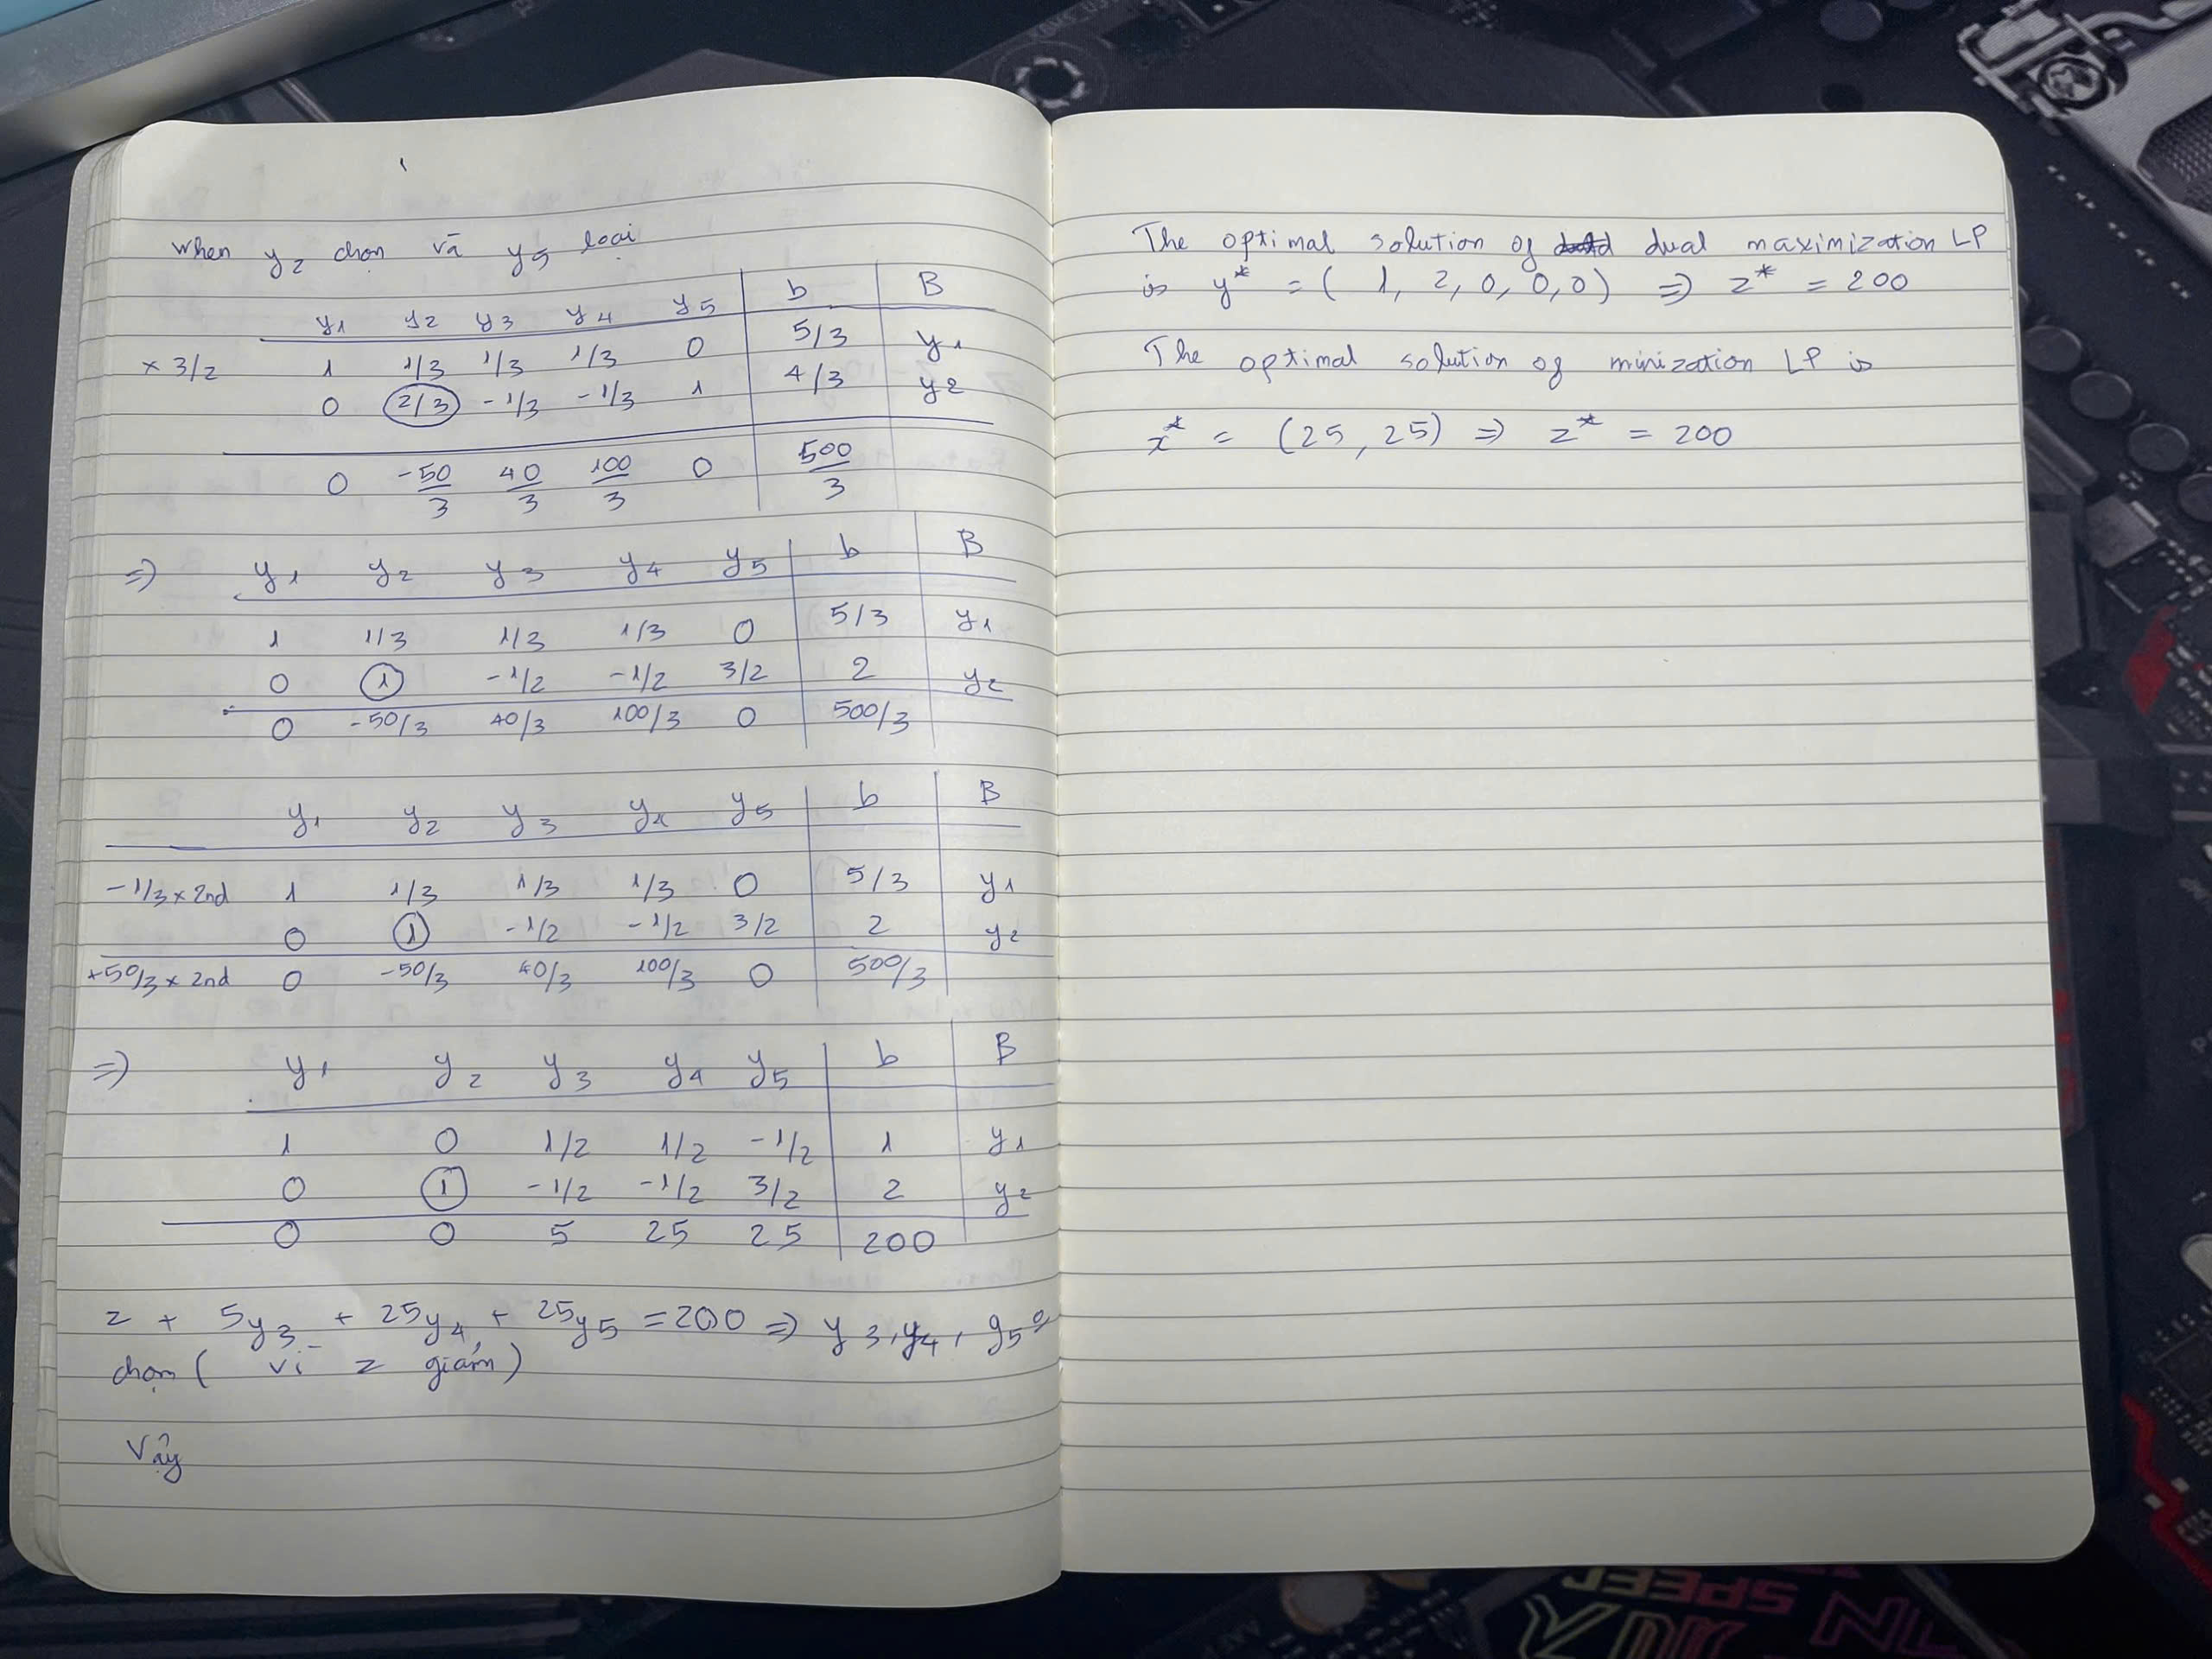 When y2 chọn và y5 loại
y1 y2 y3 y4 y5 b B
× 3/2 1 1/3 1/3 1/3 0 5/3 y1
0 2/3 -1/3 -1/3 1 4/3 y2
0 -50/3 40/3 100/3 0 500/3
=> y1 y2 y3 y4 y5 b B
1 1/3 1/3 1/3 0 5/3 y1
0 1 -1/2 -1/2 3/2 2 y2
0 -50/3 40/3 100/3 0 500/3
y1 y2 y3 y4 y5 b B
-1/3 × 2nd 1 1/3 1/3 1/3 0 5/3 y1
0 1 -1/2 -1/2 3/2 2 y2
+50/3 × 2nd 0 -50/3 40/3 100/3 0 500/3
=> y1 y2 y3 y4 y5 b B
1 0 1/2 1/2 -1/2 1 y1
0 1 -1/2 -1/2 3/2 2 y2
0 0 5 25 25 200
z + 5y3 + 25y4 + 25y5 = 200 => y3, y4, y5
chọn ( vì z giảm)
Vậy
The optimal solution of dual maximization LP
is y* = ( 1, 2, 0, 0, 0) => z* = 200
The optimal solution of minization LP is
x* = (25, 25) => z* = 200
SPEED